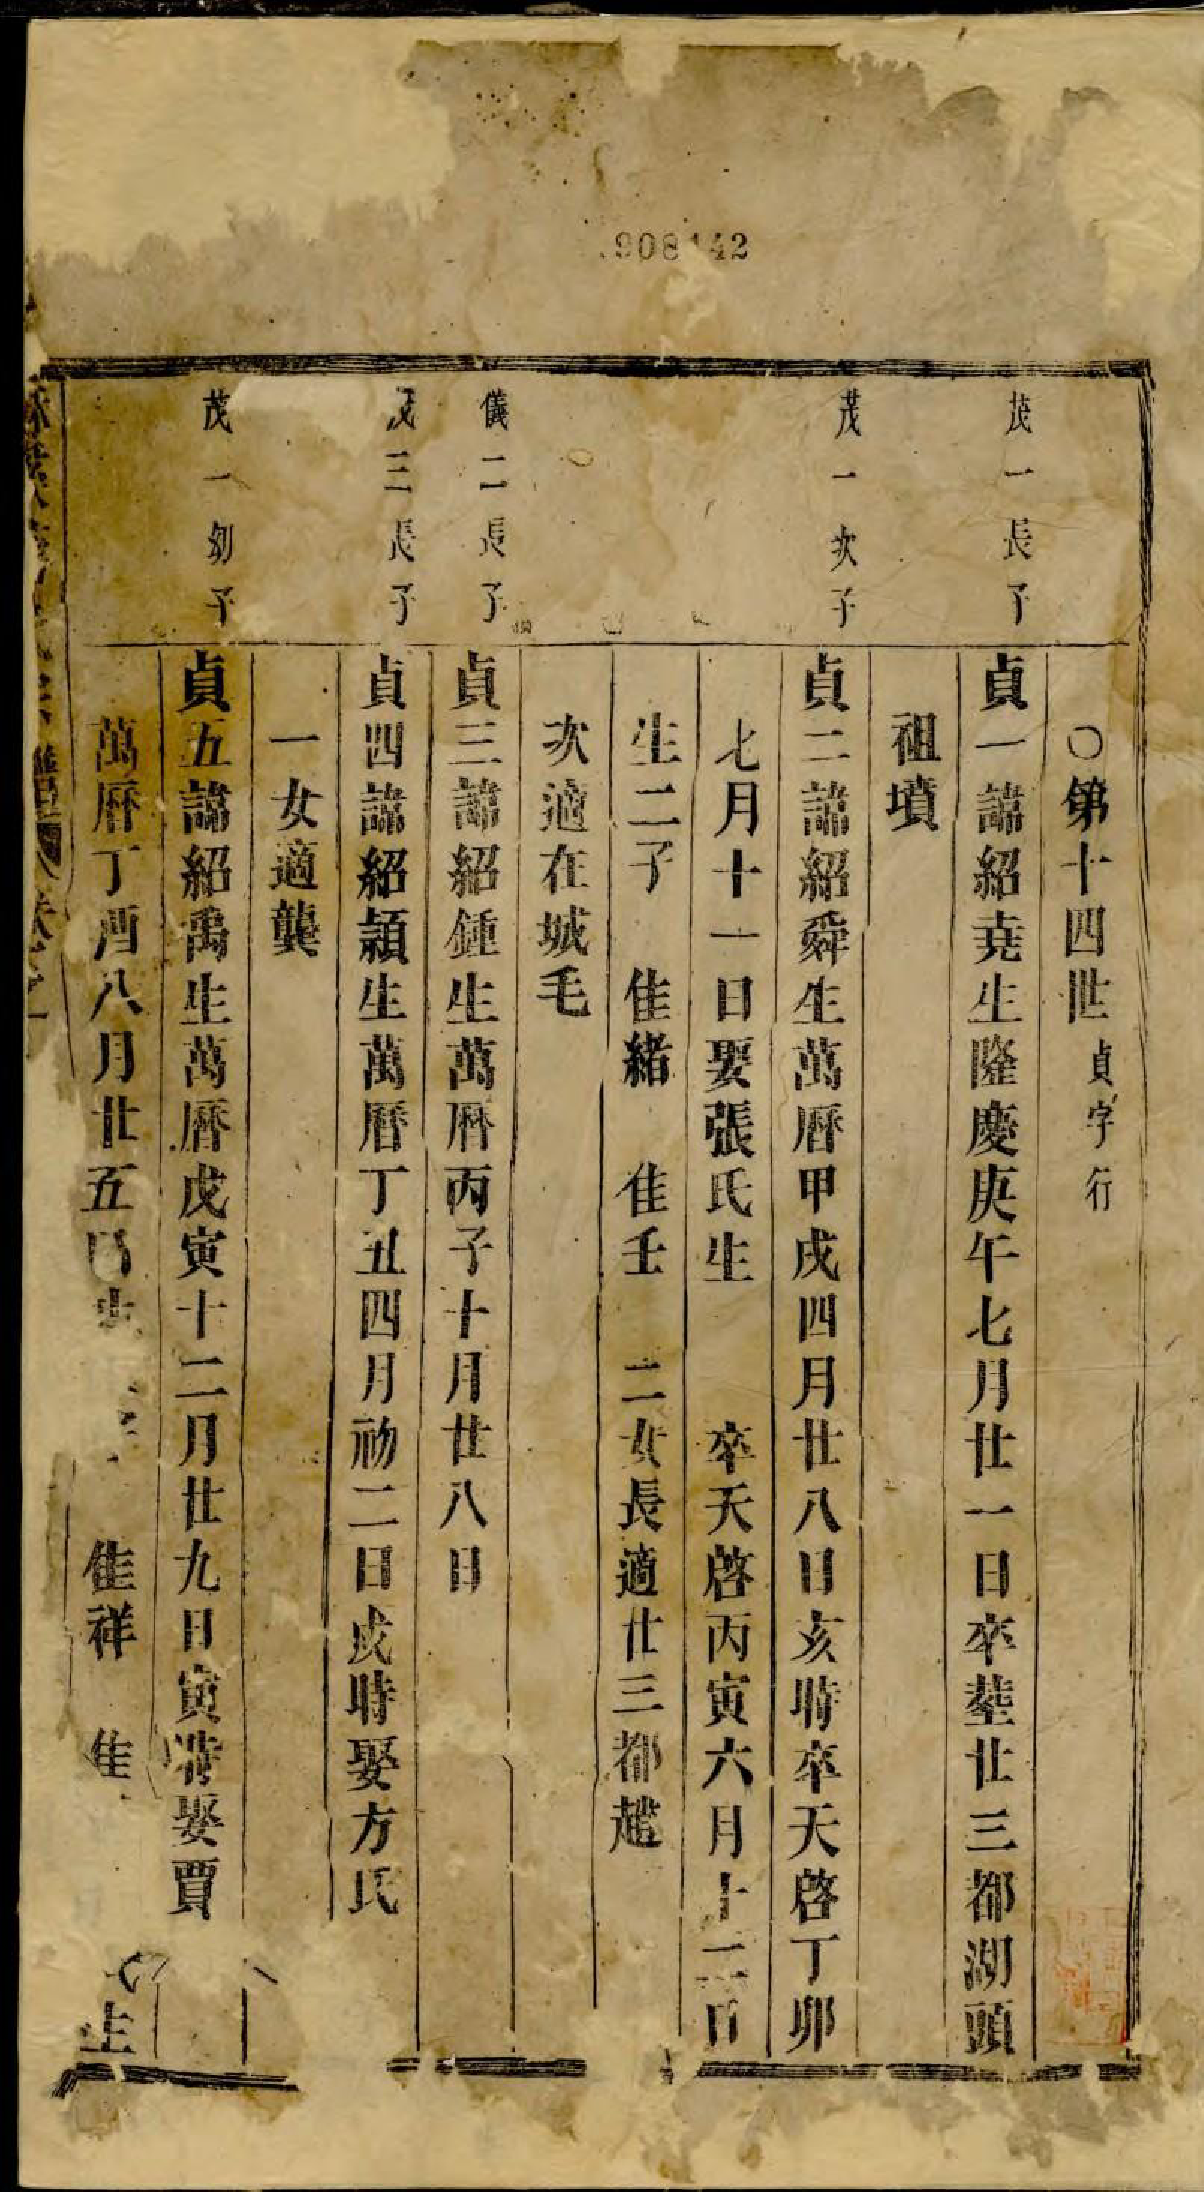 908142
○第十四世 貞字行
茂一長子
貞一諱紹堯生隆慶庚午七月廿一日卒塟廿三都湖頭
祖墳
茂一次子
貞二諱紹舜生萬曆甲戌四月廿八日亥時卒天啓丁卯
七月十一日娶張氏生 卒天啓丙寅六月十二日
生二子 佳緒 佳壬 二女長適廿三都趙
次適在城毛
儀二長子
貞三諱紹鍾生萬曆丙子十月廿八日
茂三長子
貞四諱紹穎生萬曆丁丑四月初二日戌時娶方氏
一女適龔
茂一幼子
貞五諱紹禹生萬曆戊寅十二月廿九日寅時娶賈
氏生
萬曆丁酉八月廿五 佳祥 佳